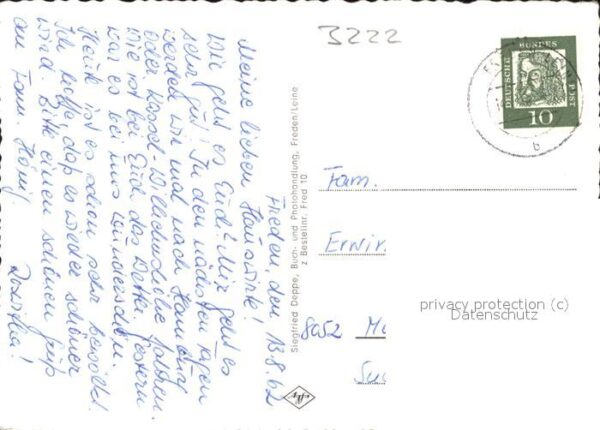 Freden, den 13.8.62
Meine lieben Hauswirte!
Wie geht es Euch? Mir geht es
sehr gut. In den nächsten Tagen
werden wir mal nach Hamburg
oder Kassel-Wilhelmshöhe fahren.
Wie ist bei Euch das Wetter. Gestern
war es bei uns wunderschön.
Heute ist es schon sehr bewölkt.
Ich hoffe daß es wieder schöner
wird. Bitte einen schönen Gruß
an Fam. König. Roswitha!
Siegfried Deppe, Buch- und Photohandlung, Freden/Leine
z Bestellnr. Fred 10
3222
DEUTSCHE BUNDESPOST
10
b
Fam.
Erwin
8052
privacy protection (c)
Datenschutz